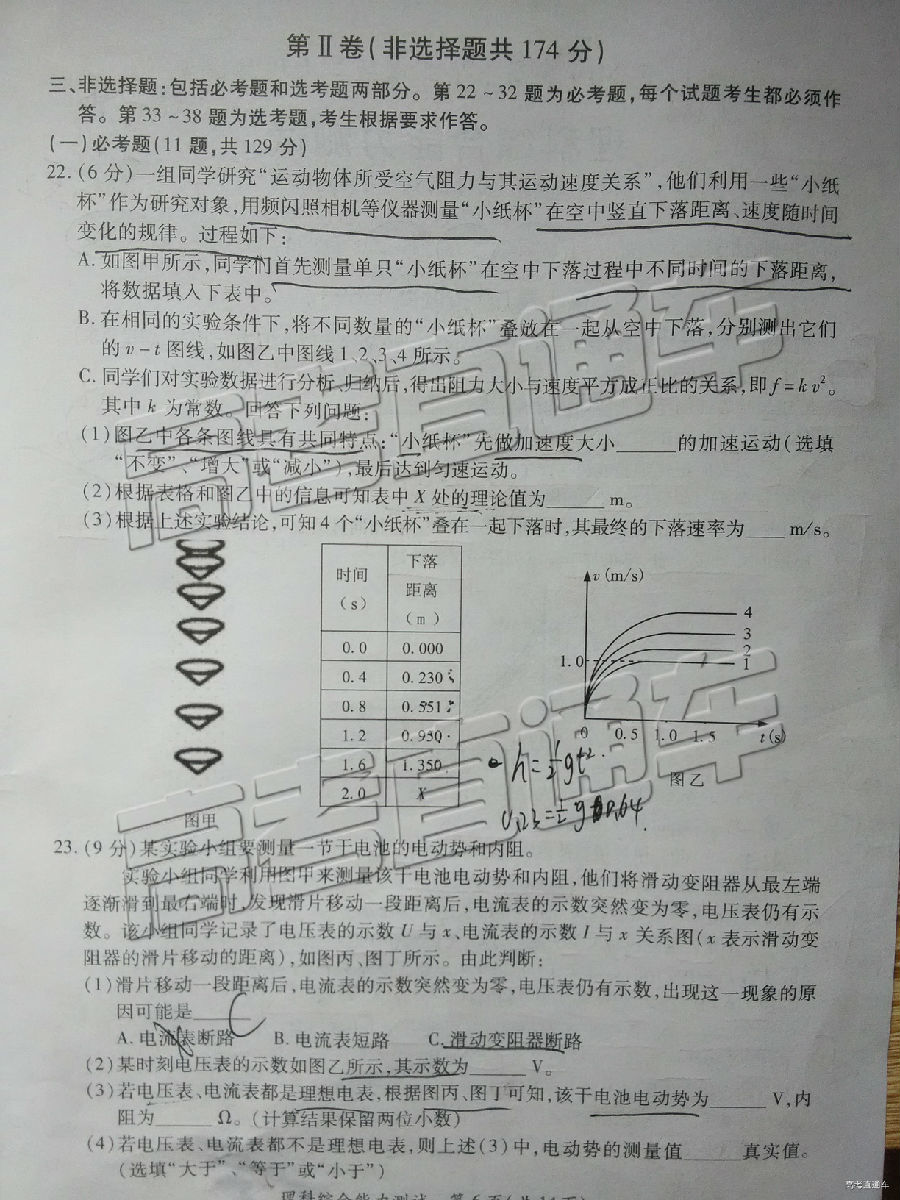 第Ⅱ卷(非选择题共174分)
三、非选择题:包括必考题和选考题两部分。第22~32题为必考题,每个试题考生都必须作
答。第33~38题为选考题,考生根据要求作答。
(一)必考题(11题,共129分)
22.(6分)一组同学研究“运动物体所受空气阻力与其运动速度关系”,他们利用一些“小纸
杯”作为研究对象,用频闪照相机等仪器测量“小纸杯”在空中竖直下落距离、速度随时间
变化的规律。过程如下:
A.如图甲所示,同学们首先测量单只“小纸杯”在空中下落过程中不同时间的下落距离,
将数据填入下表中。
B.在相同的实验条件下,将不同数量的“小纸杯”叠放在一起从空中下落,分别测出它们
的v-t图线,如图乙中图线1、2、3、4所示。
C.同学们对实验数据进行分析、归纳后,得出阻力大小与速度平方成正比的关系,即f=kv²。
其中k为常数。回答下列问题:
(1)图乙中各条图线具有共同特点:“小纸杯”先做加速度大小______的加速运动(选填
“不变”、“增大”或“减小”),最后达到匀速运动。
(2)根据表格和图乙中的信息可知表中X处的理论值为______m。
(3)根据上述实验结论,可知4个“小纸杯”叠在一起下落时,其最终的下落速率为____m/s。
时间(s) 下落距离(m)
0.0 0.000
0.4 0.230
0.8 0.551
1.2 0.950
1.6 1.350
2.0 X
图甲
v(m/s)
4
3
2
1
1.0
0 0.5 1.0 1.5 t(s)
图乙
h=½gt²
0.23=½g 0.64
23.(9分)某实验小组要测量一节干电池的电动势和内阻。
实验小组同学利用图甲来测量该干电池电动势和内阻,他们将滑动变阻器从最左端
逐渐滑到最右端时,发现滑片移动一段距离后,电流表的示数突然变为零,电压表仍有示
数。该小组同学记录了电压表的示数U与x、电流表的示数I与x关系图(x表示滑动变
阻器的滑片移动的距离),如图丙、图丁所示。由此判断:
(1)滑片移动一段距离后,电流表的示数突然变为零,电压表仍有示数,出现这一现象的原
因可能是______C
A.电流表断路 B.电流表短路 C.滑动变阻器断路
(2)某时刻电压表的示数如图乙所示,其示数为______V。
(3)若电压表、电流表都是理想电表,根据图丙、图丁可知,该干电池电动势为______V,内
阻为______Ω。(计算结果保留两位小数)
(4)若电压表、电流表都不是理想电表,则上述(3)中,电动势的测量值______真实值。
(选填“大于”、“等于”或“小于”)
理科综合能力测试 第6页(共14页)
高考直通车
高考直通车
高考直通车